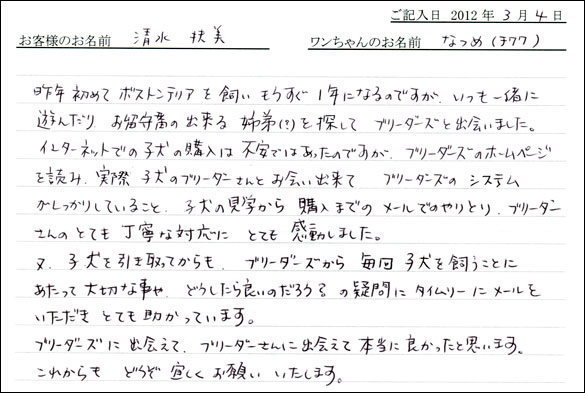 ご記入日 2012 年 3 月 4 日
お客様のお名前 清水 扶美 ワンちゃんのお名前 なつめ(ﾎ777)
昨年 初めて ボストンテリア を 飼い もうすぐ 1年になるのですが、いつも一緒に
遊んだり、お留守番の出来る 姉弟(?)を探して ブリーダーズと出会いました。
インターネットでの子犬の購入は不安ではあったのですが、ブリーダーズのホームページ
を読み、実際 子犬のブリーダーさんとお会い出来て ブリーダーズの システム
がしっかりしていること、子犬の見学から 購入までの メールでのやりとり、ブリーダー
さんの とても 丁寧な対応に とても 感動しました。
又、子犬を引き取ってからも、ブリーダーズから 毎回 子犬を飼うことに
あたって 大切な事や、どうしたら良いのだろう? の疑問に タイムリーに メールを
いただき とても助かっています。
ブリーダーズに出会えて、ブリーダーさんに出会えて本当に良かったと思います。
これからも どうぞ 宜しくお願い いたします。